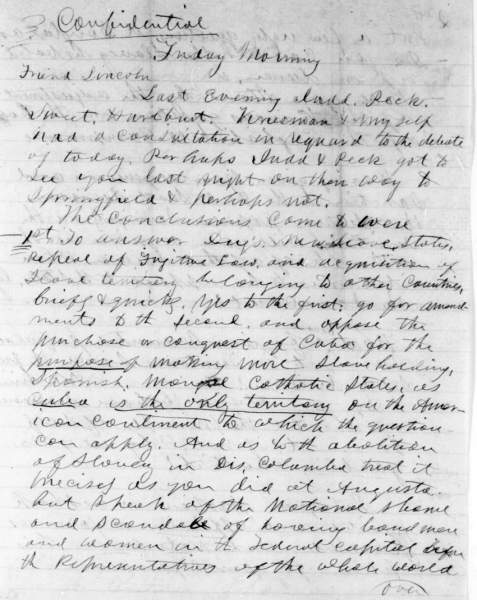 Confidential
Friday Morning
Friend Lincoln
Last Evening Judd, Peck,
Sweet, Hurlbut. & myself
had a Consultation in reguard to the debate
of today. Perhaps Judd & Peck got to
see you last night on their way to
Springfield & perhaps not.
The Conclusions Come to were
1st To answer Dug's. New Slave States,
Repeal of Fugitive Law, and acquisition of
Slave territory belonging to other Countries,
briefly & quickly, yes to the first; go for amend-
ments to th second, and oppose the
purchase or conquest of Cuba for the
purpose of making more Slave holding,
Spanish, Catholic States, as
Cuba is the only territory on the Amer-
ican Continent to which the question
can apply. And as to th abolition
of Slavery in Dis. Columbia treat it
precisely as you did at Augusta.
but speak of the National Shame
and Scandale of having bondmen
and women in th Federal Capital before
th Representatives of the whole World
over